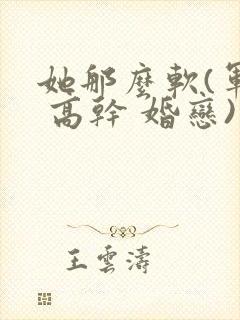 她那麼軟(軍
高幹 婚戀)
王雲濤